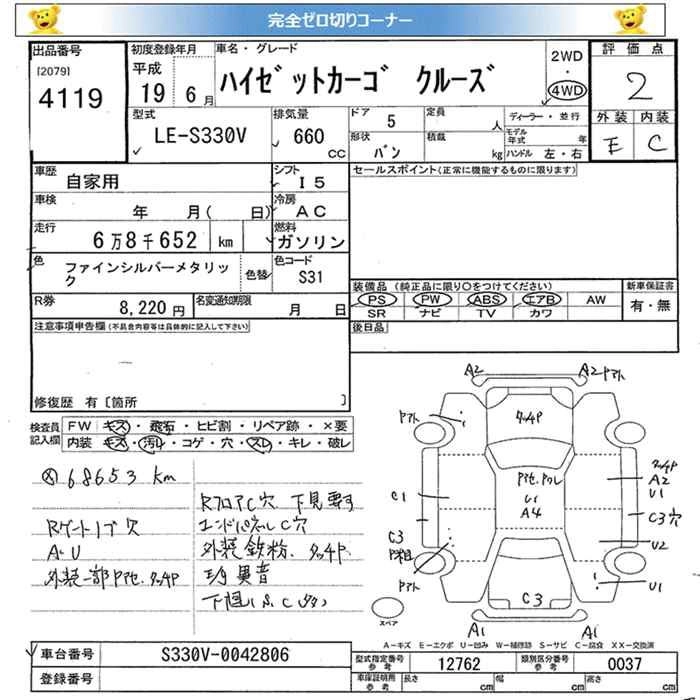 完全ゼロ切りコーナー
出品番号
[2079]
4119
初度登録年月
平成
19 6月
車名・グレード
ハイゼットカーゴ クルーズ
2WD
・
4WD
評価点
2
外装 内装
E C
型式
LE-S330V
排気量
660
CC
ドア
5
定員
人
形状
バン
積載
kg
ディーラー・並行
モデル年式
年
ハンドル 左・右
車歴
自家用
シフト
I5
セールスポイント(正常に機能するものに限ります)
車検
年 月( 日)
冷房
AC
走行
6万8千652 km
燃料
ガソリン
色
ファインシルバーメタリック
色替
色コード
S31
装備品 (純正品に限り○をつけてください)
PS PW ABS エアB AW
SR ナビ TV カワ
新車保証書
有・無
R券
8,220円
名変通知期限
月 日
後日品
注意事項申告欄(不具合内容等は具体的に記入して下さい)
修復歴 有〔箇所 〕
検査員記入欄
FW キズ・飛石・ヒビ割・リペア跡・×要
内装 キズ・汚れ・コゲ・穴・スレ・キレ・破レ
68653 km
RフロアC穴 下見要す
エンドパネルC穴
外装鉄粉
異音
A・U
外装一部
A2
A2
C1
C3
U1
A4
A2
U1
C3穴
U2
U1
C3
A1
A1
スペア
A-キズ E-エクボ U-凹み W-補修跡 S-サビ C-腐食 XX-交換済
車台番号
S330V-0042806
登録番号
型式指定番号
参考
12762
類別区分番号
参考
0037
車庫証明用
参考
長さ cm 幅 cm 高さ cm